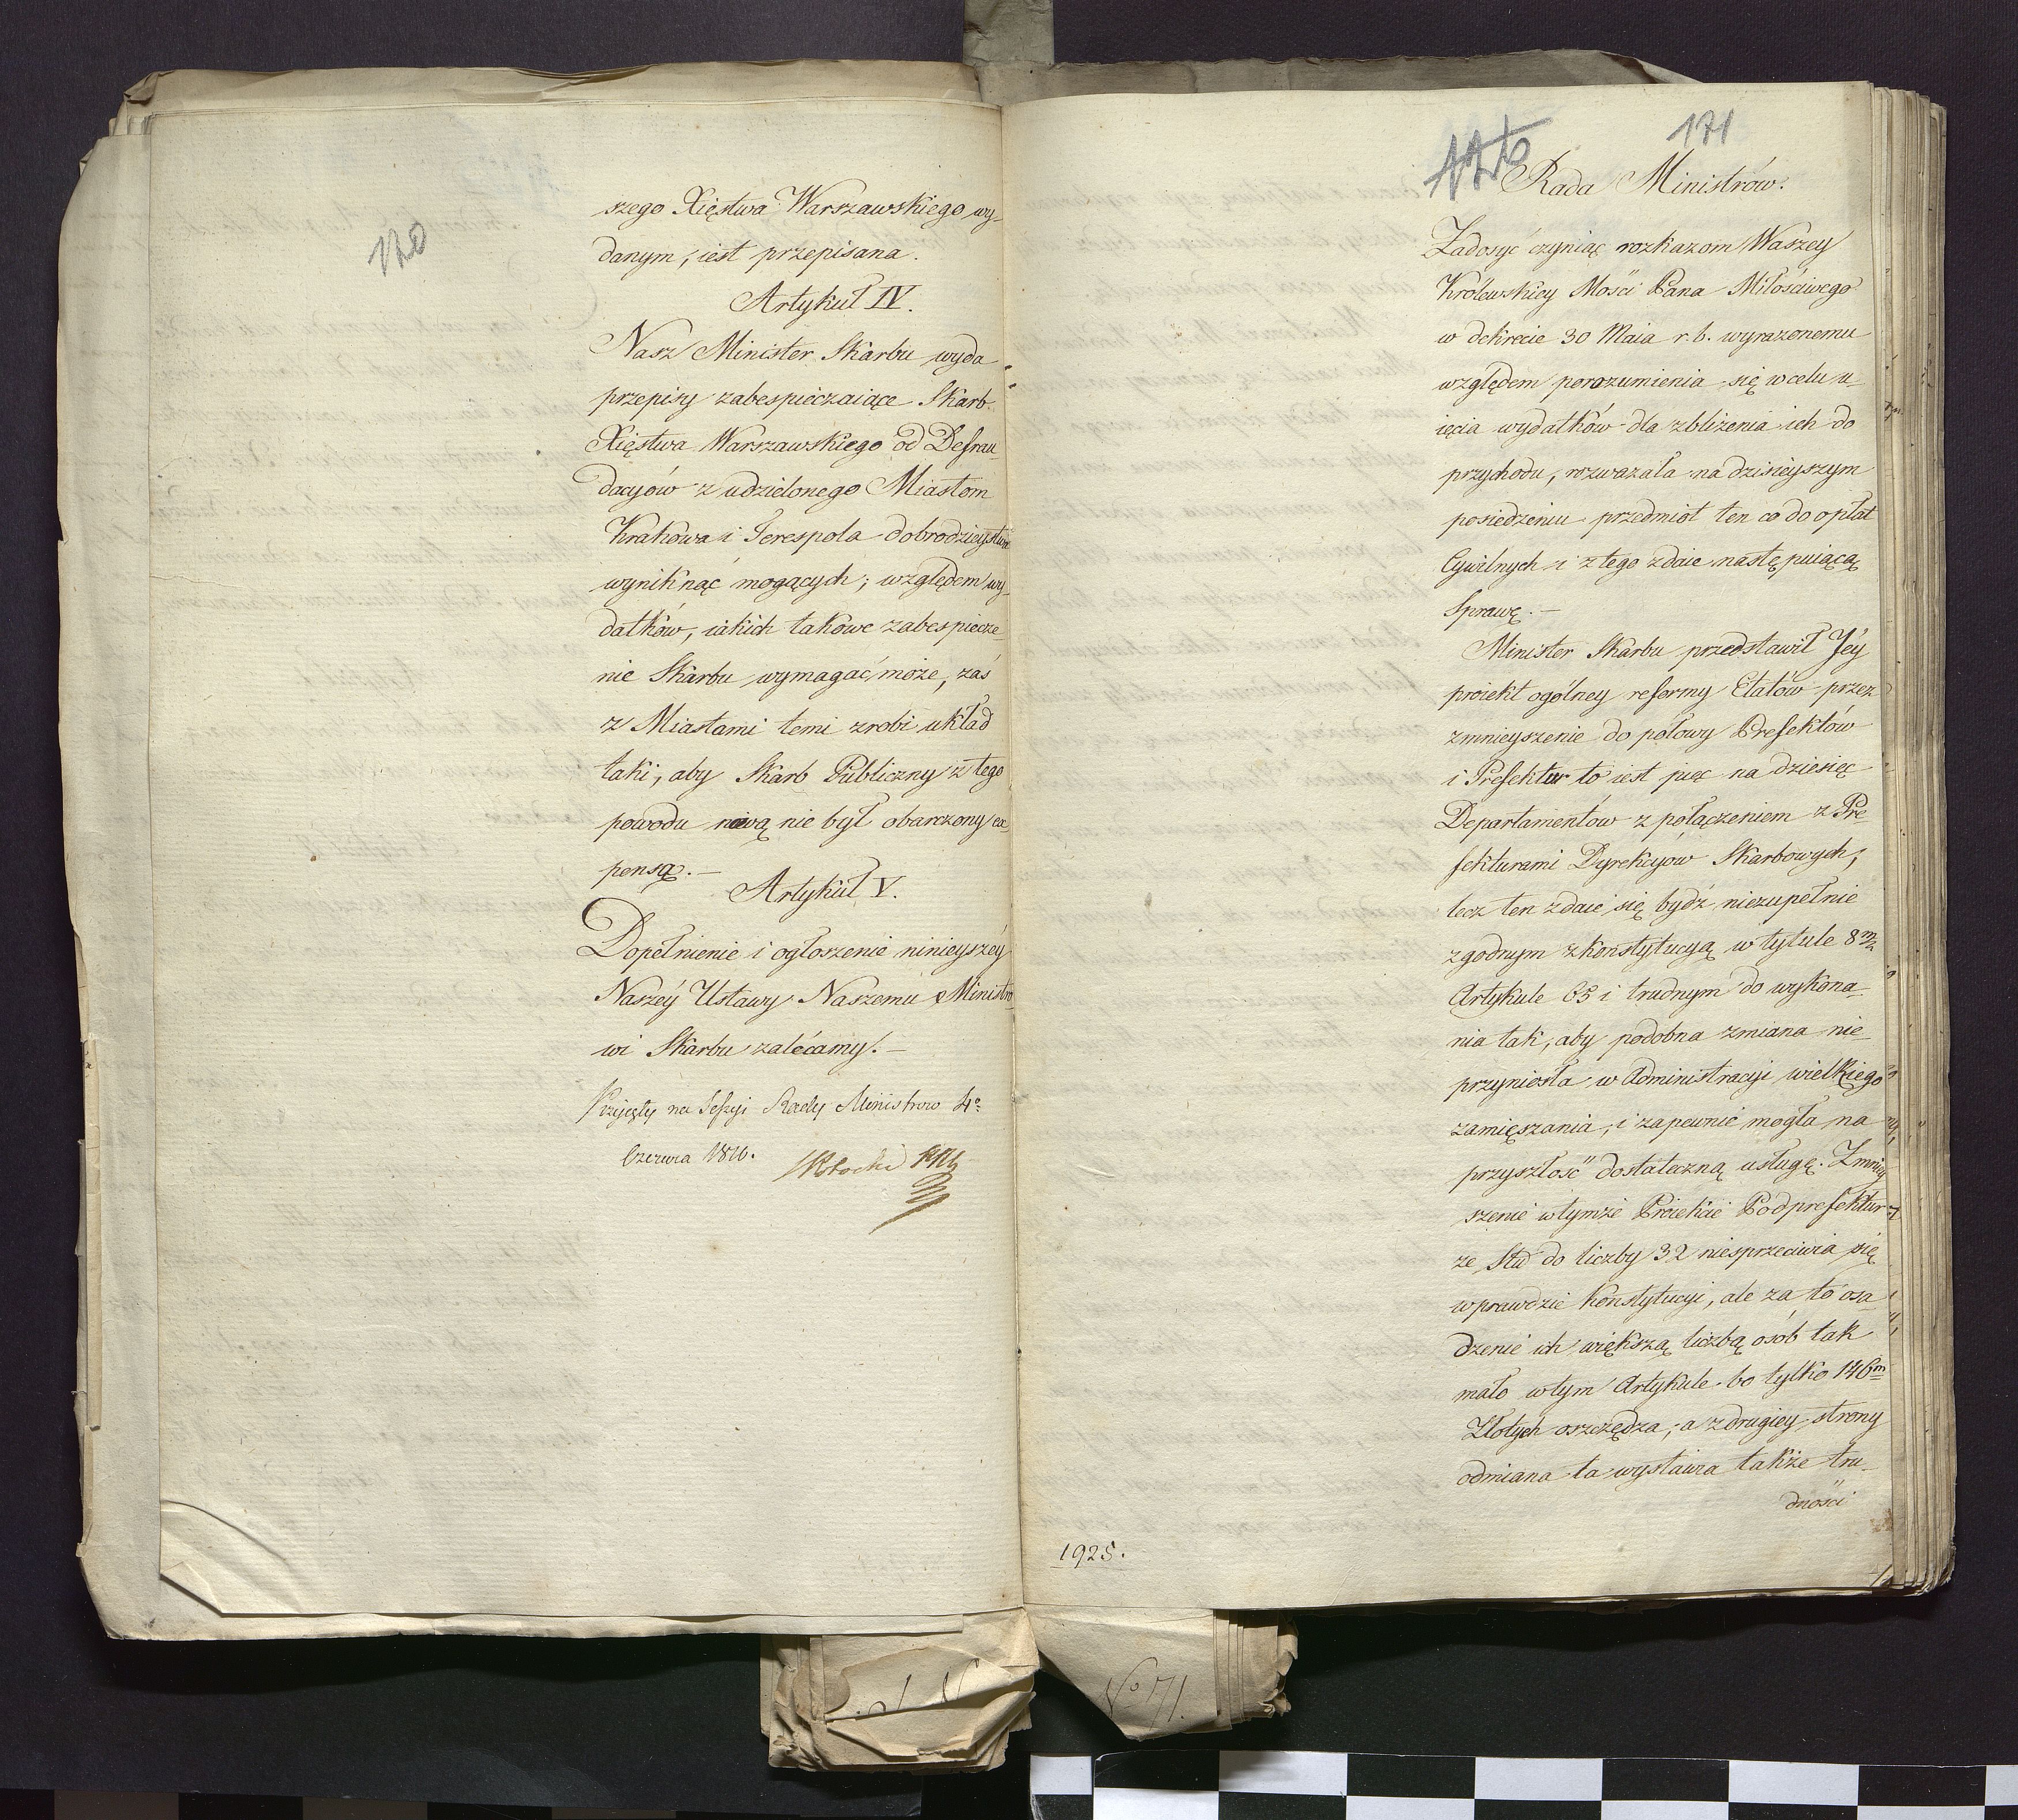 170
szego Xięstwa Warszawskiego wy-
danym, iest przepisana.
Artykuł IV.
Nasz Minister Skarbu wyda
przepisy zabespieczaiące Skarb
Xięstwa Warszawskiego od Defrau-
dacyów z udzielonego Miastom
Krakowa i Terespola dobrodzieystwa
wyniknąć mogących; względem wy-
datków, iakich takowe zabespiecze-
nie Skarbu wymagać może, zaś
z Miastami temi zrobi układ
taki, aby Skarb Publiczny z tego
powodu nową nie był obarczony ex-
pensą.-
Artykuł V.
Dopełnienie i ogłoszenie ninieyszéy
Naszéy Ustawy Naszemu Ministro-
wi Skarbu zalécamy.-
Przyięty na Sessyi Rady Ministrow 4º
Czerwca 1810.
171
Rada Ministrów.
Zadosyć czyniąc rozkazom Waszey
Królewskiey Mości Pana Miłościwego
w dekrecie 30 Maia r.b. wyrazonemu
względem porozumienia się w celu u-
ięcia wydatków dla zbliżenia ich do
przychodu, rozwazała na dzisieyszym
posiedzeniu przedmiot ten co do opłat
Cywilnych i z tego zdaie następuiącą
Sprawę.-
Minister Skarbu przedstawił Jéy
proiekt ogólney reformy Etatów przez
zmnieyszenie do połowy Prefektów
i Prefektur to iest pięc na dziesięc
Departamentów z połączeniem z Pre-
fekturami Dyrekcyow Skarbowych,
lecz ten zdaie się bydź niezupełnie
zgodnym z konstytucyą w tytule 8m
Artykule 65 i trudnym do wykona-
nia tak, aby podobna zmiana nie-
przyniosła w Administracyi wielkiego
zamięszania, i zapewnić mogła na
przyszłość dostateczną usługę. Zmniey-
szenie w tymże Proiekcie Podprefektur
ze Stu do liczby 32 niesprzeciwia się
wprawdzie Konstytucyi, ale za to osa-
dzenie ich większą liczbą osób tak
mało w tym Artykule bo tylko 146m
Złotych oszczędza, a z drugiey strony
odmiana ta wystawia takze tru-
dności
1925.
Nº 71.